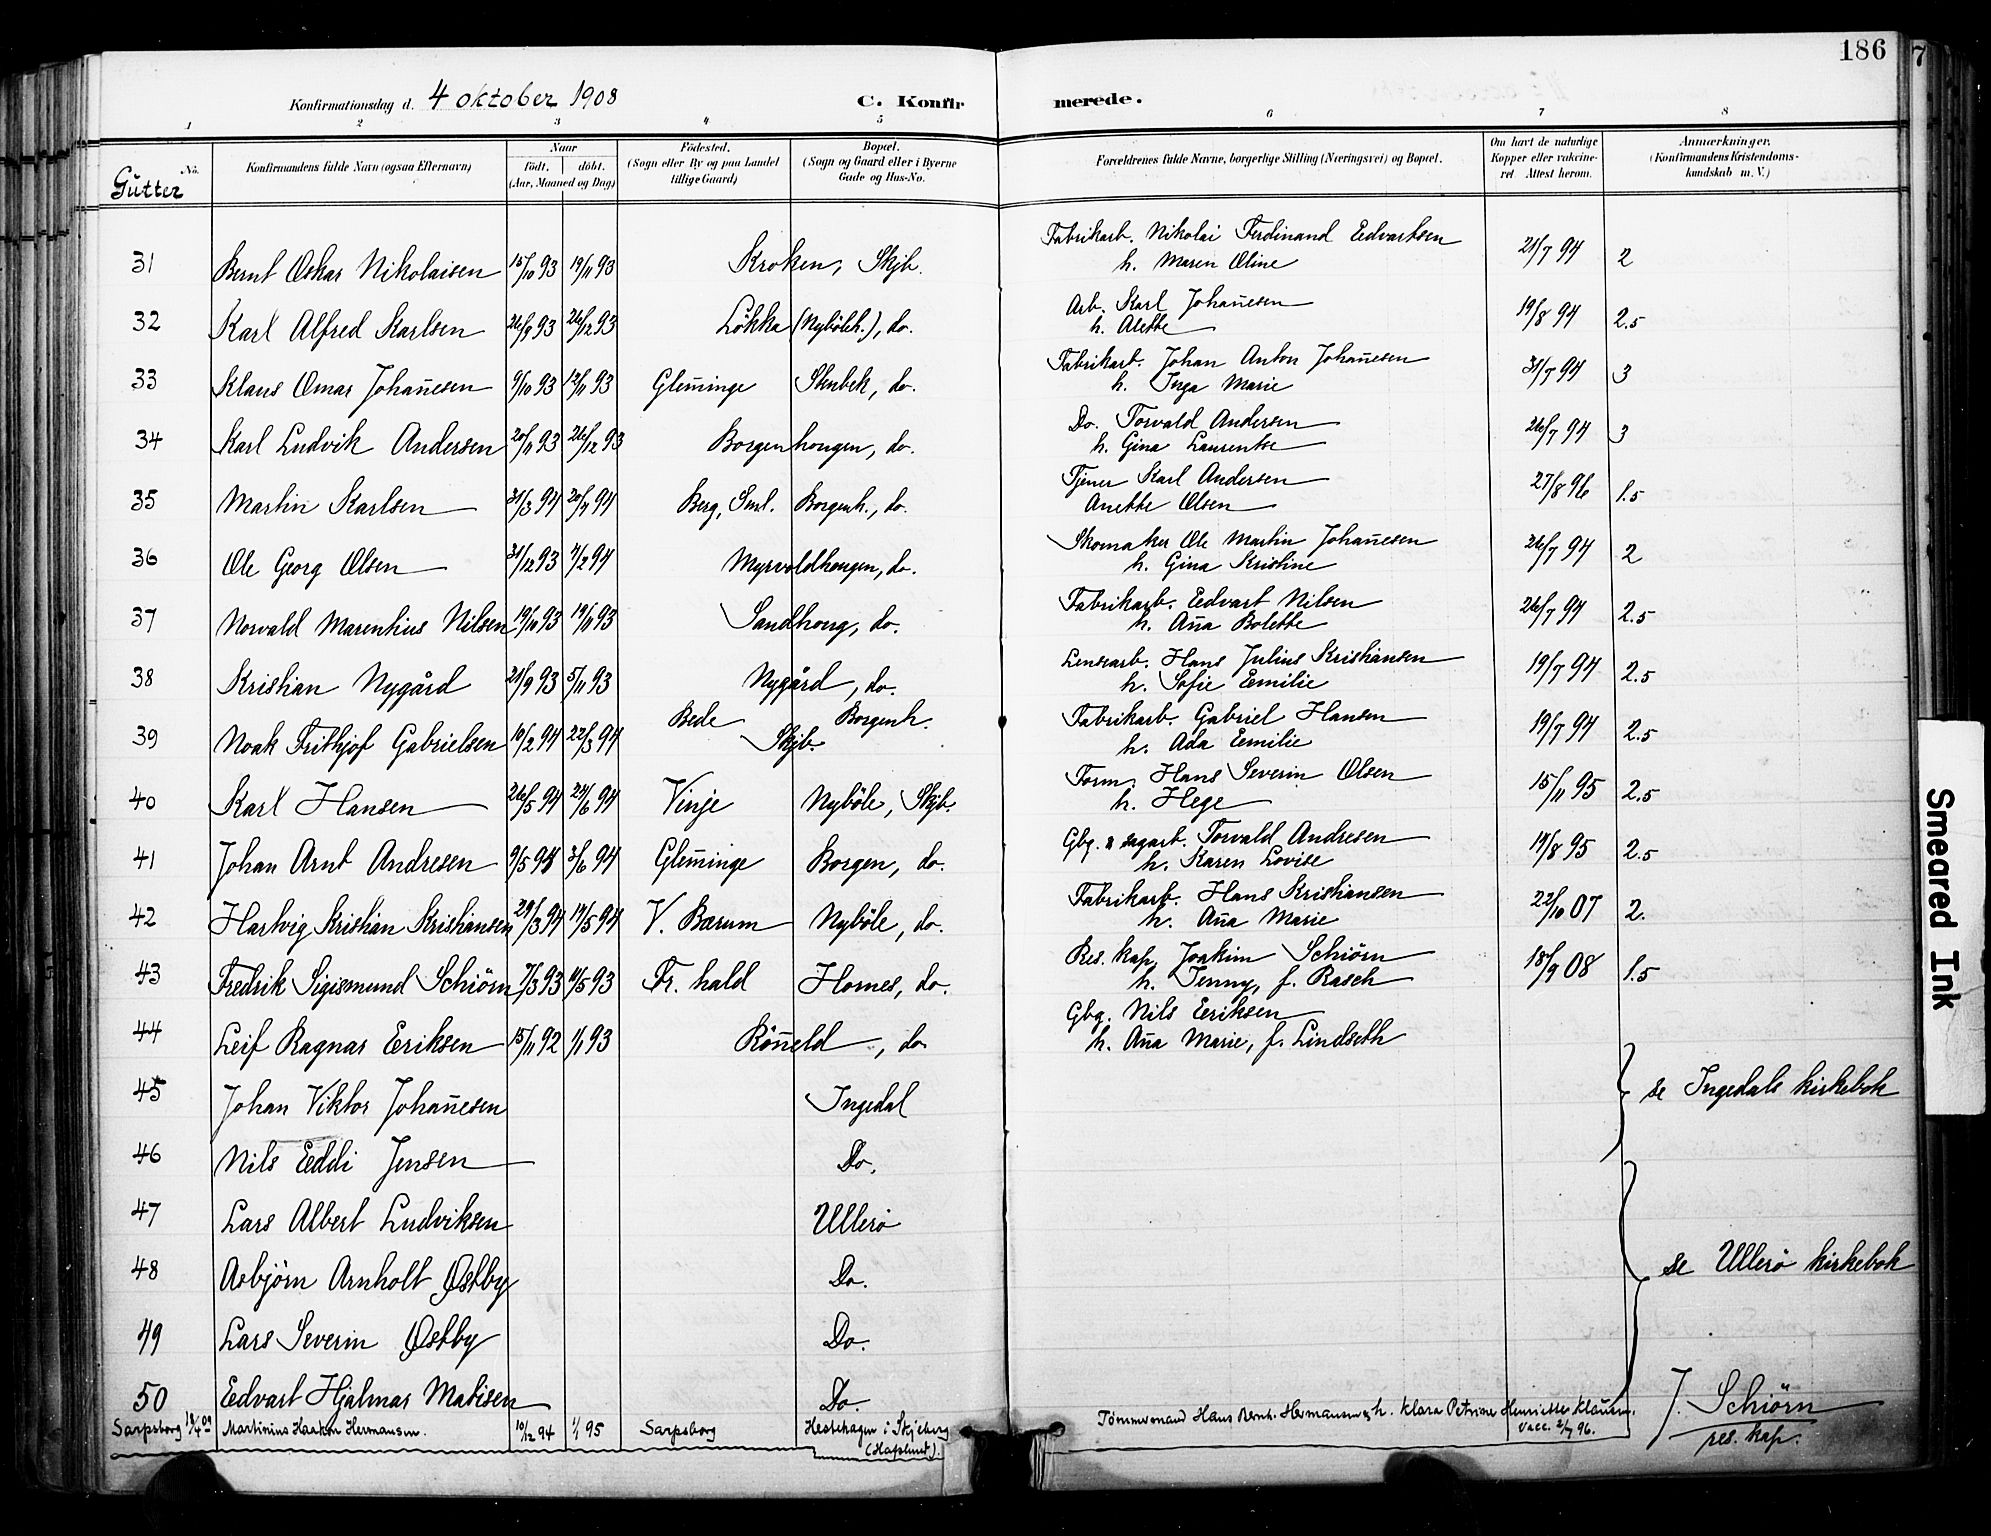 186
7
Konfirmationsdag d. 4 oktober 1908
C. Konfir merede.
1 2 3 4 5 6 7 8
Gutter
No.
Konfirmandens fulde Navn (ogsaa Efternavn)
Naar
født. døbt.
(Aar, Maaned og Dag)
Fødested.
(Sogn eller By og paa Landet
tillige Gaard)
Bopæl.
(Sogn og Gaard eller i Byerne
Gade og Hus-No.
Forældrenes fulde Navne, borgerlige Stilling (Næringsvei) og Bopæl.
Om havt de naturlige
Kopper eller vaksine-
ret Attest herom.
Anmærkninger.
(Konfirmandens Kristendoms-
kundskab m. V.)
31 Bernt Oskar Nikolaisen 15/10 93 19/11 93 Kroken, Skjb. Fabrikarb. Nikolai Ferdinand Edvartsen 21/7 94 2
h. Maren Oline
32 Karl Alfred Karlsen 26/9 93 26/12 93 Løkka (Nyböleh.), do. Arb. Karl Johan̄esen 19/8 94 2.5
h. Alette
33 Klaus Omar Johan̄esen 9/10 93 12/11 93 Glem̄inge Stenbek, do. Fabrikarb. Johan Anton Johan̄esen 31/7 94 3
h. Inga Marie
34 Karl Ludvik Andersen 20/11 93 26/12 93 Borgenhougen, do. Do. Torvald Andersen 26/7 94 3
h. Gina Laurentse
35 Martin Karlsen 31/3 94 20/7 94 Berg, Sml. Borgenh., do. Tjener Karl Andersen 27/8 96 1.5
Anette Olsen
36 Ole Georg Olsen 31/12 93 4/2 94 Myrvoldhougen, do. Skomaker Ole Martin Johan̄esen 26/7 94 2
h. Gina Kristine
37 Norvald Marentius Nilsen 19/10 93 19/11 93 Sandhoug, do. Fabrikarb. Edvart Nilsen 26/7 94 2.5
h. An̄a Bolette
38 Kristian Nygård 21/9 93 5/11 93 Nygård, do. Lensearb. Hans Julius Kristiansen 19/7 94 2.5
h. Sofie Emilie
39 Noak Frithjof Gabrielsen 16/2 94 22/3 94 Bede Borgenh. Skjb. Fabrikarb. Gabriel Hansen 19/7 94 2.5
h. Ada Emilie
40 Karl Hansen 26/5 94 24/6 94 Vinje Nyböle, Skjb. Form. Hans Severin Olsen 15/11 95 2.5
h. Hege
41 Johan Arnt Andresen 9/5 94 3/6 94 Glem̄inge Borgen, do. Gbg. & sagarb. Torvald Andresen 19/8 95 2.5
h. Karen Lovise
42 Hartvig Kristian Kristiansen 29/3 94 14/5 94 V. Bærum Nyböle, do. Fabrikarb. Hans Kristiansen 22/10 07 2.
h. An̄a Marie
43 Fredrik Sigismund Schiörn 7/3 93 11/5 93 Fr. hald Hornes, do. Res. kap. Joakim Schiörn 18/9 08 1.5
h. Jenny, f. Rasch
44 Leif Ragnar Eriksen 15/11 92 1/1 93 Rön̄eld, do Gbg. Nils Eriksen
h. An̄a Marie, f. Lindseth
45 Johan Viktor Johan̄esen Ingedal se Ingedals kirkebok
46 Nils Eddi Jensen Do.
47 Lars Albert Ludviksen Ullerö
48 Asbjörn Arnholt Østby Do. se Ullerö kirkebok
49 Lars Severin Østby Do.
50 Edvart Hjalmar Matisen Do.
J. Schiörn
res. kap.
Sarpsborg 18/4 09 Martinius Haakon Hermansen. 10/12 94 1/1 95 Sarpsborg Hestehagen i Skjeberg Tömmermand Hans Bernh. Hermansen & h. Klara Petrine Henriette Klausen.
(Hafslund). Vacc. 2/7 96.
Smeared Ink